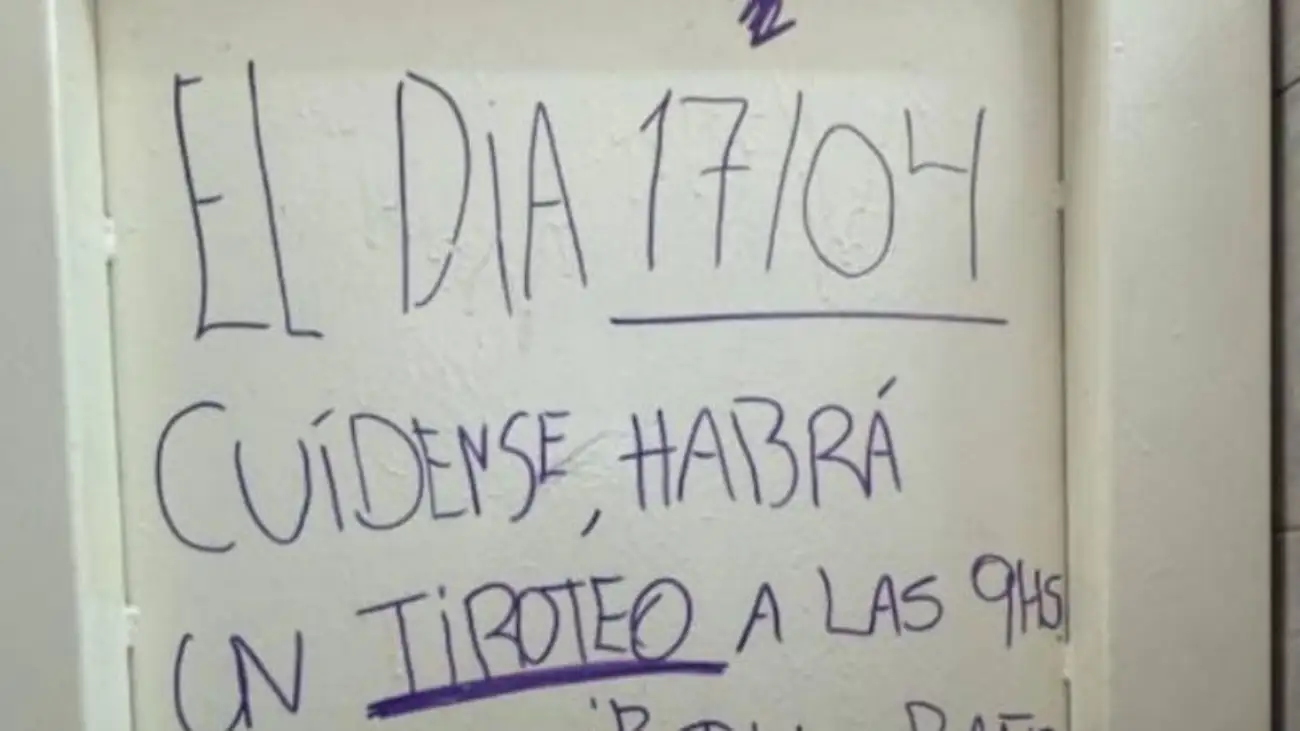 EL DIA 17/04
CUÍDENSE, HABRÁ
UN TIROTEO A LAS 9HS